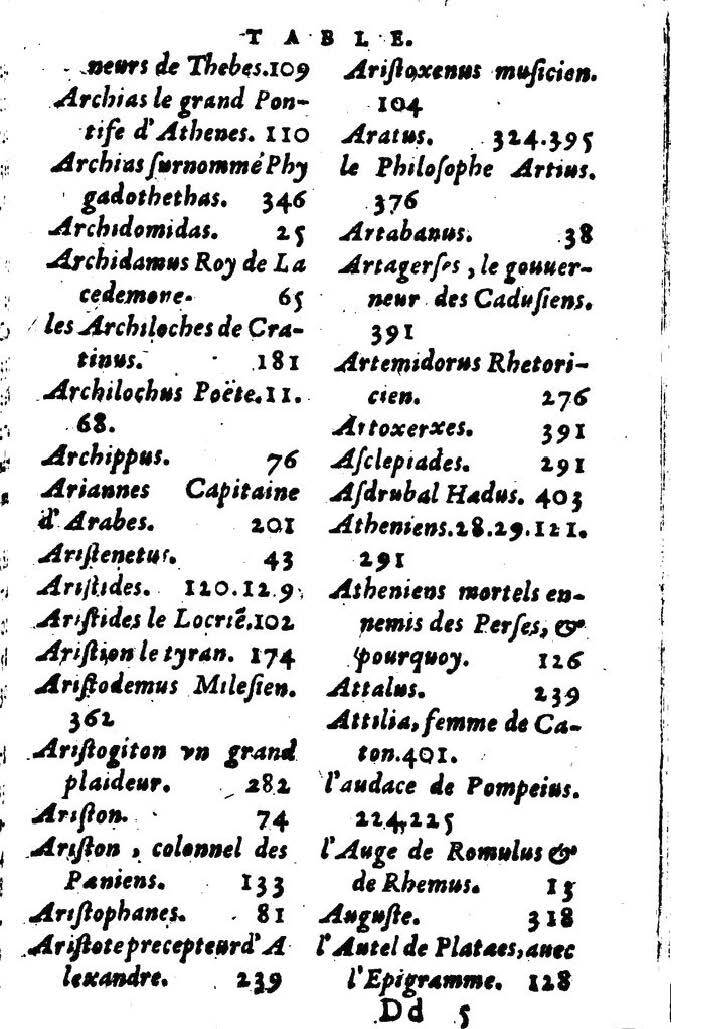 TABLE.
neurs de Thebes.109
Archias le grand Pon-
tife d'Athenes. 110
Archias ſurnommé Phy
gadothethas. 346
Archidomidas. 25
Archidamus Roy de La
cedemone. 65
les Archiloches de Cra-
tinus. 181
Archilochus Poëte.11.
68.
Archippus. 76
Ariannes Capitaine
d'Arabes. 201
Ariſtenetus. 43
Ariſtides. 120.129
Ariſtides le Locriē.102
Ariſtion le tyran. 174
Ariſtodemus Mileſien.
362
Ariſtogiton vn grand
plaideur. 282
Ariſton. 74
Ariſton, colonnel des
Paniens. 133
Ariſtophanes. 81
Ariſtote precepteur d'A
lexandre. 239
Ariſtoxenus muſicien.
104
Aratus. 324.395
le Philoſophe Artius.
376
Artabanus. 38
Artagerſes, le gouuer-
neur des Caduſiens.
391
Artemidorus Rhetori-
cien. 276
Artoxerxes. 391
Aſclepiades. 291
Aſdrubal Hadus. 403
Atheniens.28.29.121.
291
Atheniens mortels en-
nemis des Perſes, &
pourquoy. 126
Attalus. 239
Attilia, femme de Ca-
ton.401.
l'audace de Pompeius.
224,225
l'Auge de Romulus &
de Rhemus. 15
Auguſte. 318
l'Autel de Plataes, auec
l'Epigramme. 128
Dd 5